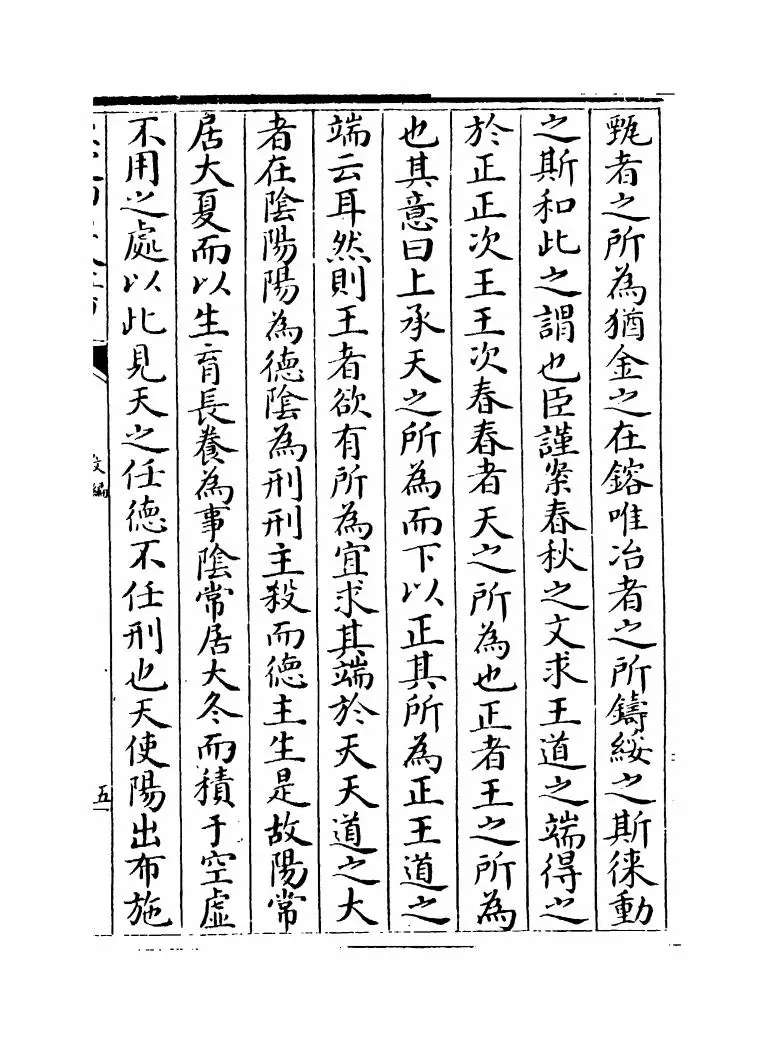 甄者之所為猶金之在鎔唯冶者之所鑄綏之斯徠動
之斯和此之謂也臣謹案春秋之文求王道之端得之
於正正次王王次春春者天之所為也正者王之所為
也其意曰上承天之所為而下以正其所為正王道之
端云耳然則王者欲有所為宜求其端於天天道之大
者在陰陽陽為德陰為刑刑主殺而德主生是故陽常
居大夏而以生育長養為事陰常居大冬而積于空虛
不用之處以此見天之任德不任刑也天使陽出布施
文編
五